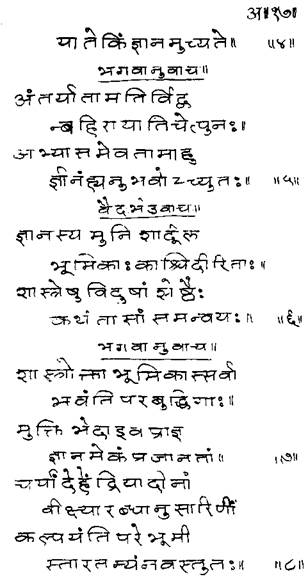 अ॥१७॥
या ते किं ज्ञानमुच्यते॥ ॥४॥
भगवानुवाच॥
अंतर्याता मतिर्विद्व
न्बहिरायाति चेत्पुनः॥
अभ्यासमेव तामाहु
र्ज्ञानंह्यनुभवोऽच्युतः॥ ॥५॥
वैदर्भउवाच॥
ज्ञानस्य मुनिशार्दूल
भूमिकाः काश्चिदीरिताः॥
शास्त्रेषु विदुषां श्रेष्ठैः
कथं तासां समन्वयः॥ ॥६॥
भगवानुवाच॥
शास्त्रोक्ता भूमिकास्सर्वा
भवंति परबुद्धिगाः॥
मुक्तिभेदा इव प्राज्ञ
ज्ञानमेकं प्रजानतां॥ ॥७॥
चर्यां देहेंद्रियादीनां
वीक्ष्यारब्धानुसारिणीं
कल्पयंति परे भूमी
स्तारतम्यं न वस्तुतः॥ ॥८॥